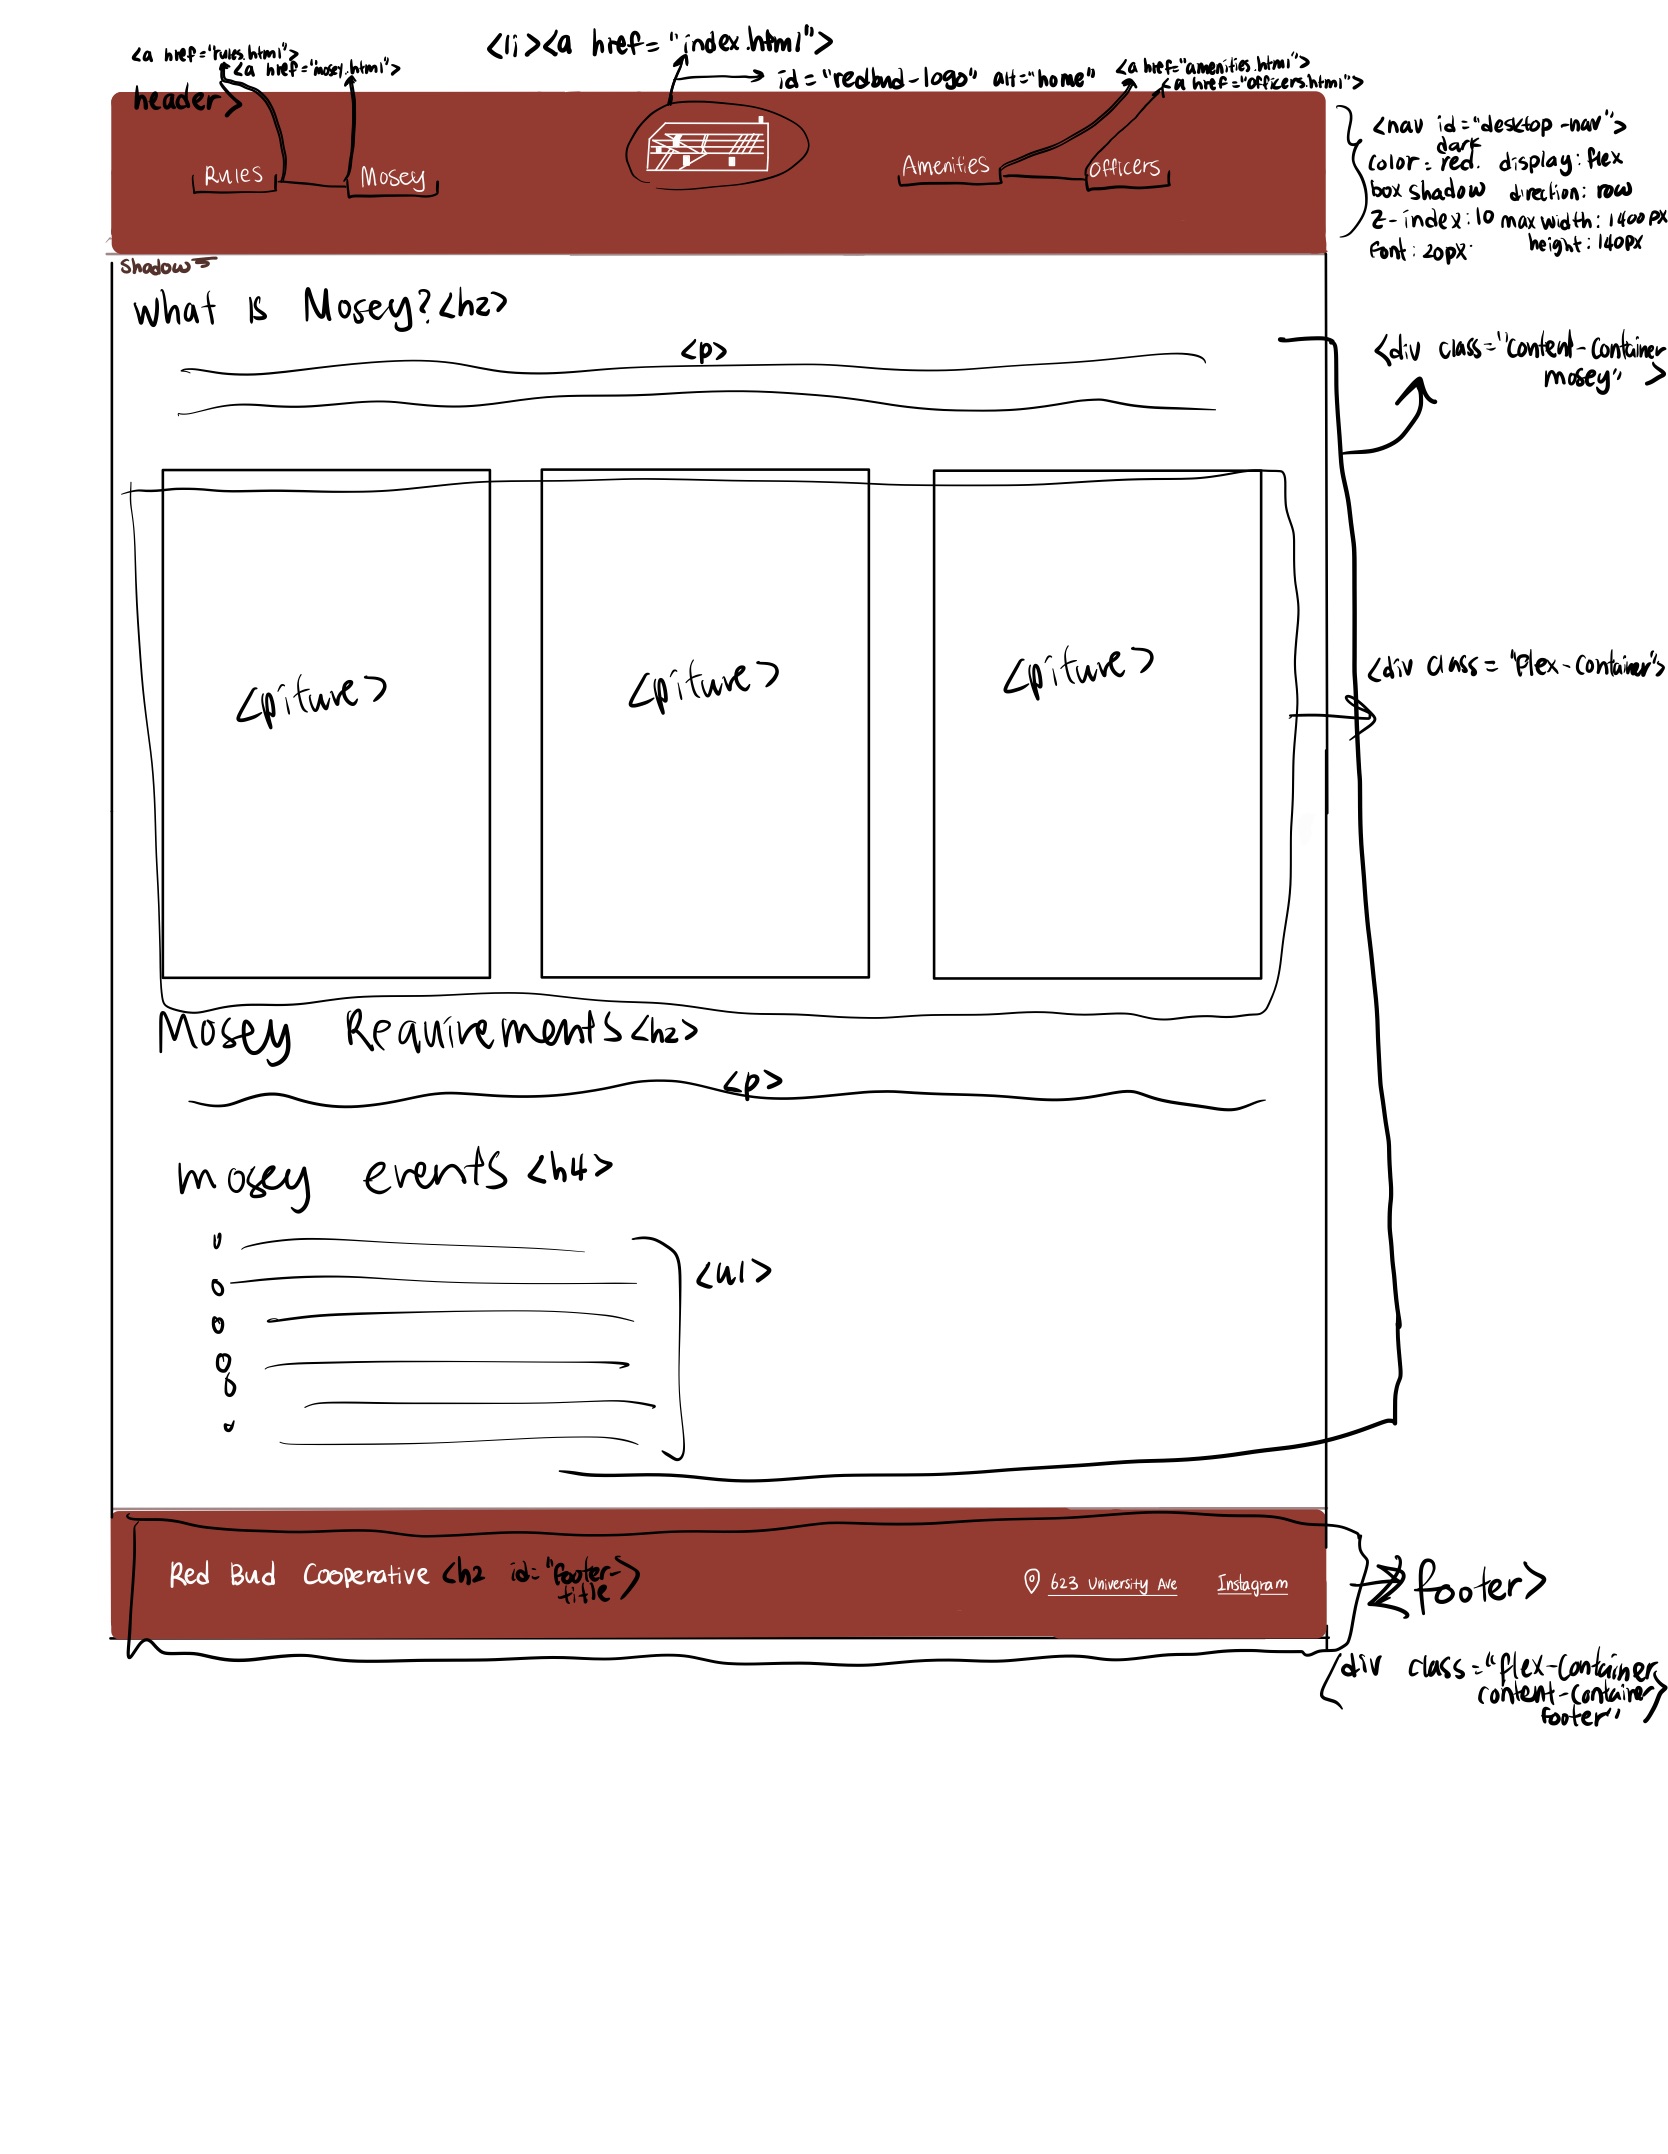 <a href="rules.html">
<a href="mosey.html">
<li><a href="index.html">
id="redbud-logo" alt="home"
<a href="amenities.html">
<a href="officers.html">
header>
Rules
Mosey
Amenities
Officers
<nav id="desktop-nav">
dark
color=red. display:flex
box shadow direction: row
z-index:10 max width: 1400px
font: 20px height: 140px
Shadow
What is Mosey?<h2>
<p>
<div class="content-container
mosey" >
<piture>
<piture>
<piture>
<div class="flex-container">
Mosey Requirements<h2>
<p>
mosey events <h4>
<ul>
Red Bud Cooperative <h2 id="footer-
title>
623 University Ave
Instagram
footer>
<div class="flex-container
content-container
footer">